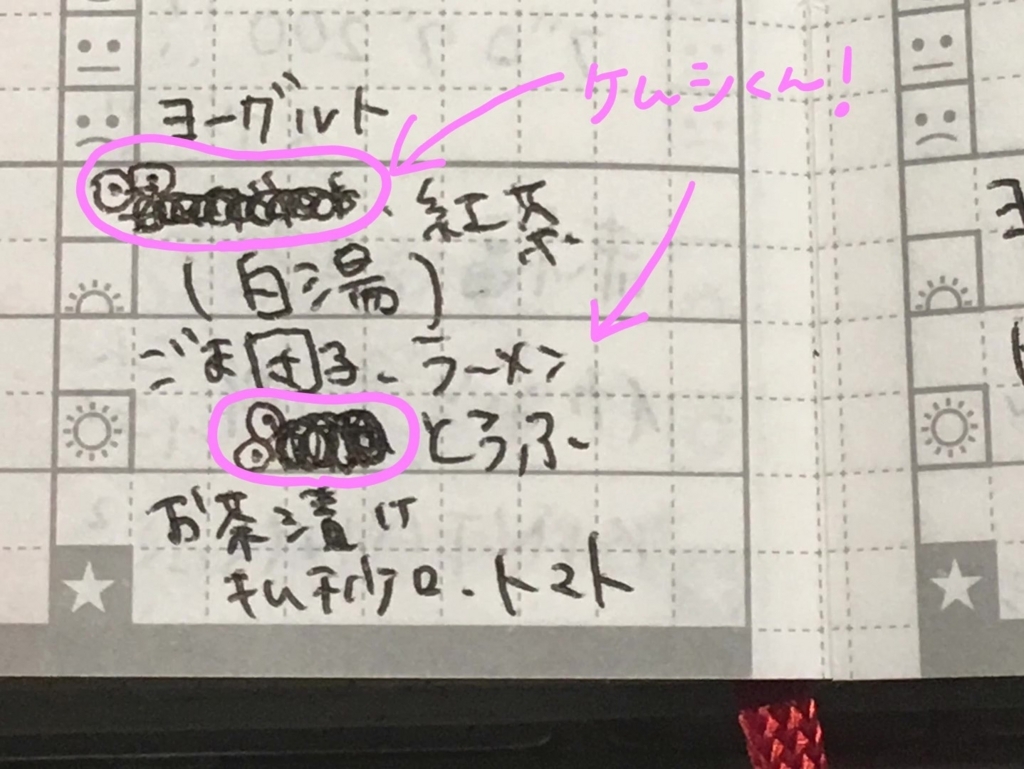 ケムシくん!
ヨーグルト
、紅茶
(白湯)
ごま団子、ラーメン
とうふ
お茶漬け
キムチ
、トマト